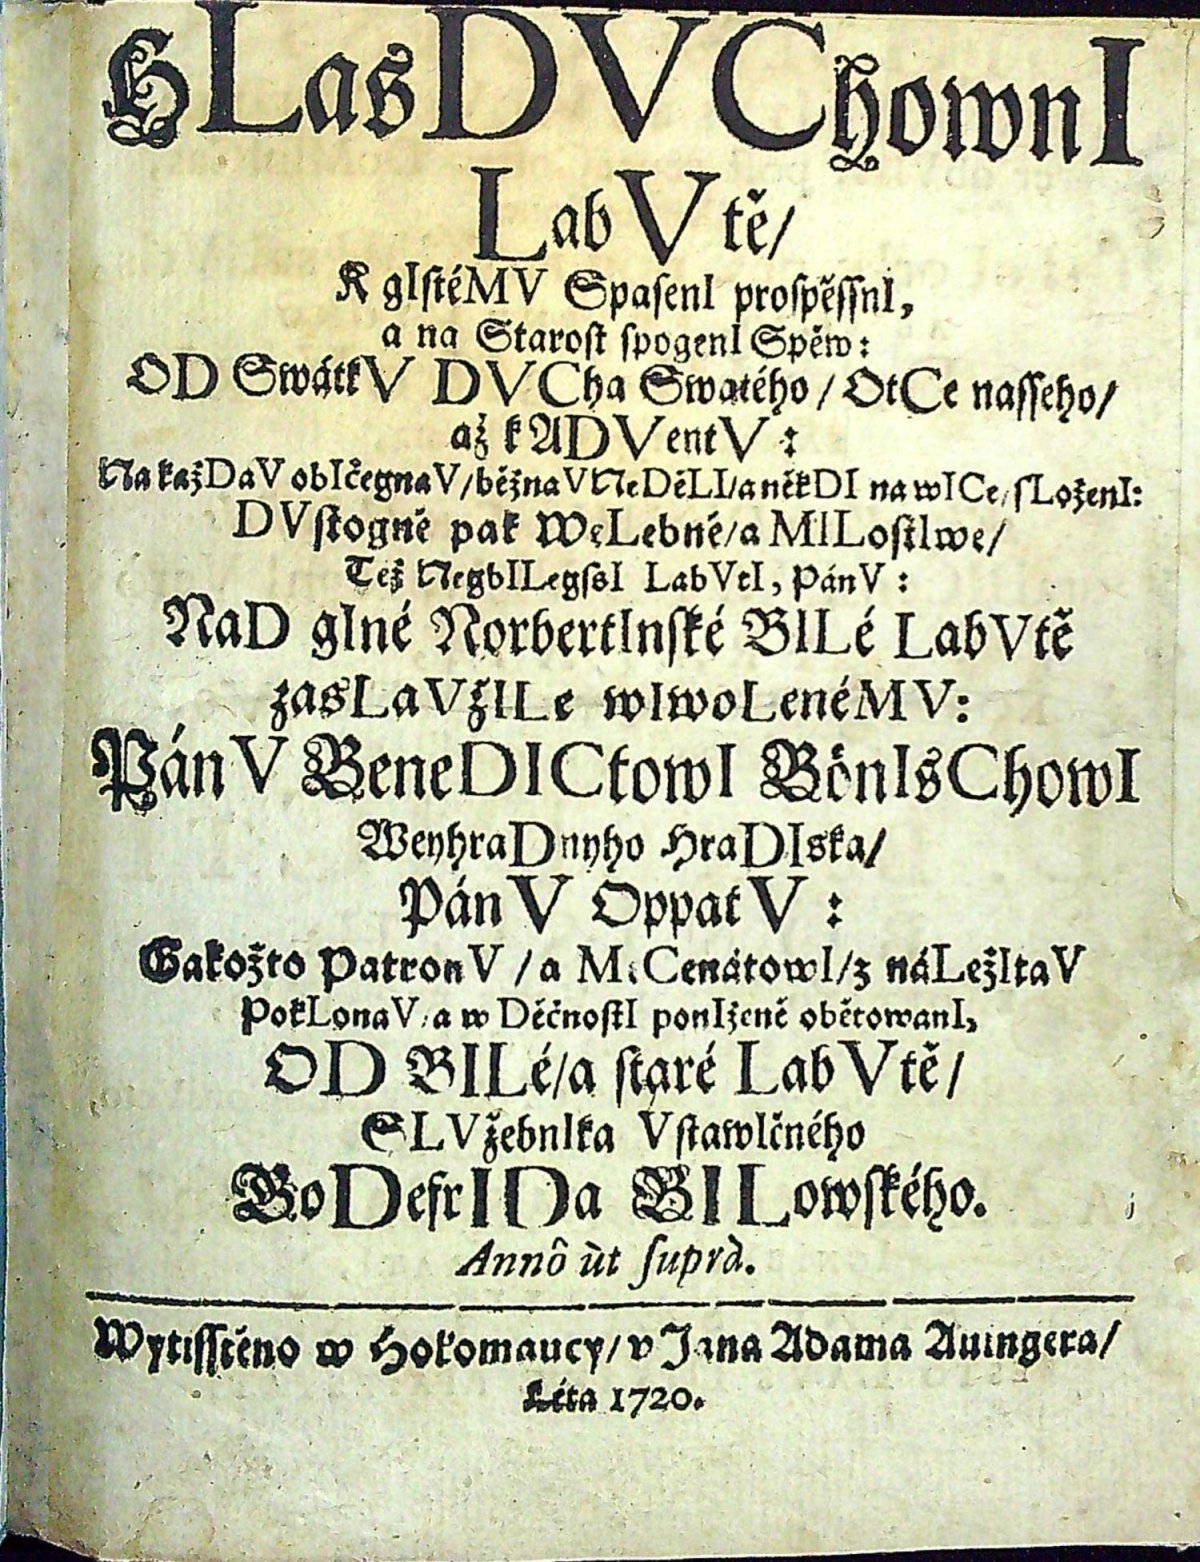 HLasDVChownI
LabVtě/
K gIstéMV SpasenI prospěssnI,
a na Starost spogenI Spěw:
OD SwátkV DVCha Swatého / OtCe nasseho/
až k ADVentV:
Na každaV obIčegnaV/běžnaV NeDěLI/a někDI na wICe/sLoženI:
DVstogně pak WeLebné/a MILostIwe/
Též NegbILegssI LabVtI, PánV:
NaD gIné NorbertInské BILé LabVtě
zasLaVžILe wIwoLenéMV:
PánV BeneDICtowI BönIsChowI
WeyhraDnyho HraDIska/
PánV OppatV:
Gakožto PatronV / a MeCenátowI/z náLežItaV
PokLonaV/a w Děčnosti ponIženě obětowanI,
OD BILé/a staré LabVtě/
SLVžebnIka VstawIčného
GoDefrIDa BILowského.
Annô ùt suprà.
Wytisstěno w Holomaucy/ v Jana Adama Auingera/
Léta 1720.